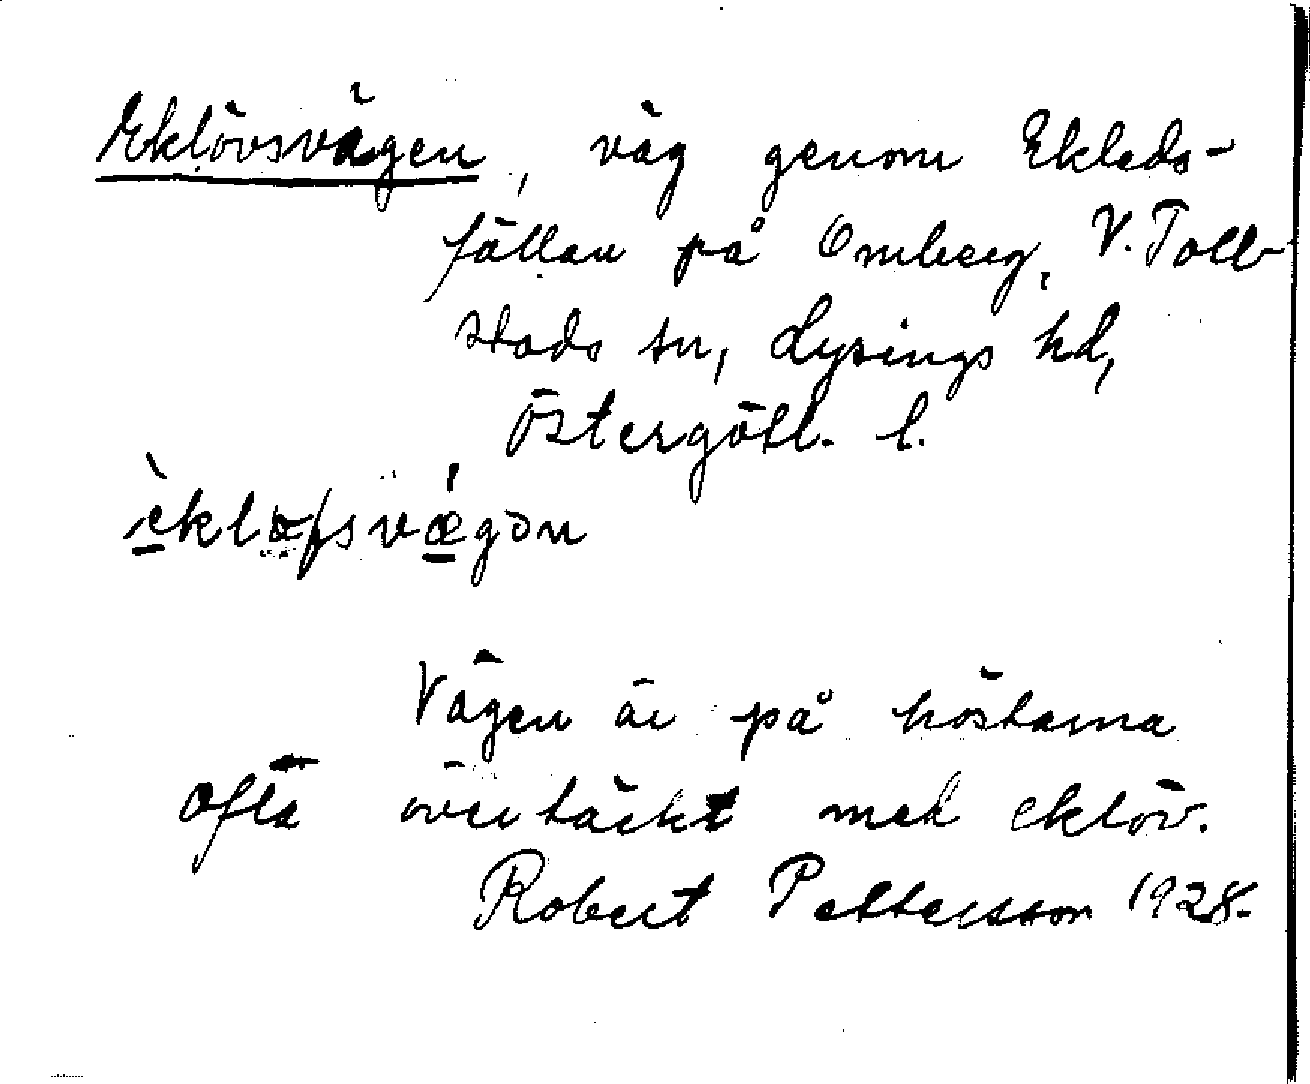 Eklövsvägen, väg genom Ekleds-
fällan på Omberg, V. Toll-
stads sn, Lysings hd,
Östergötl. l.
èkløfsvǽgən
Vägen är på höstarna
ofta övertäckt med eklöv.
Robert Pettersson 1928.